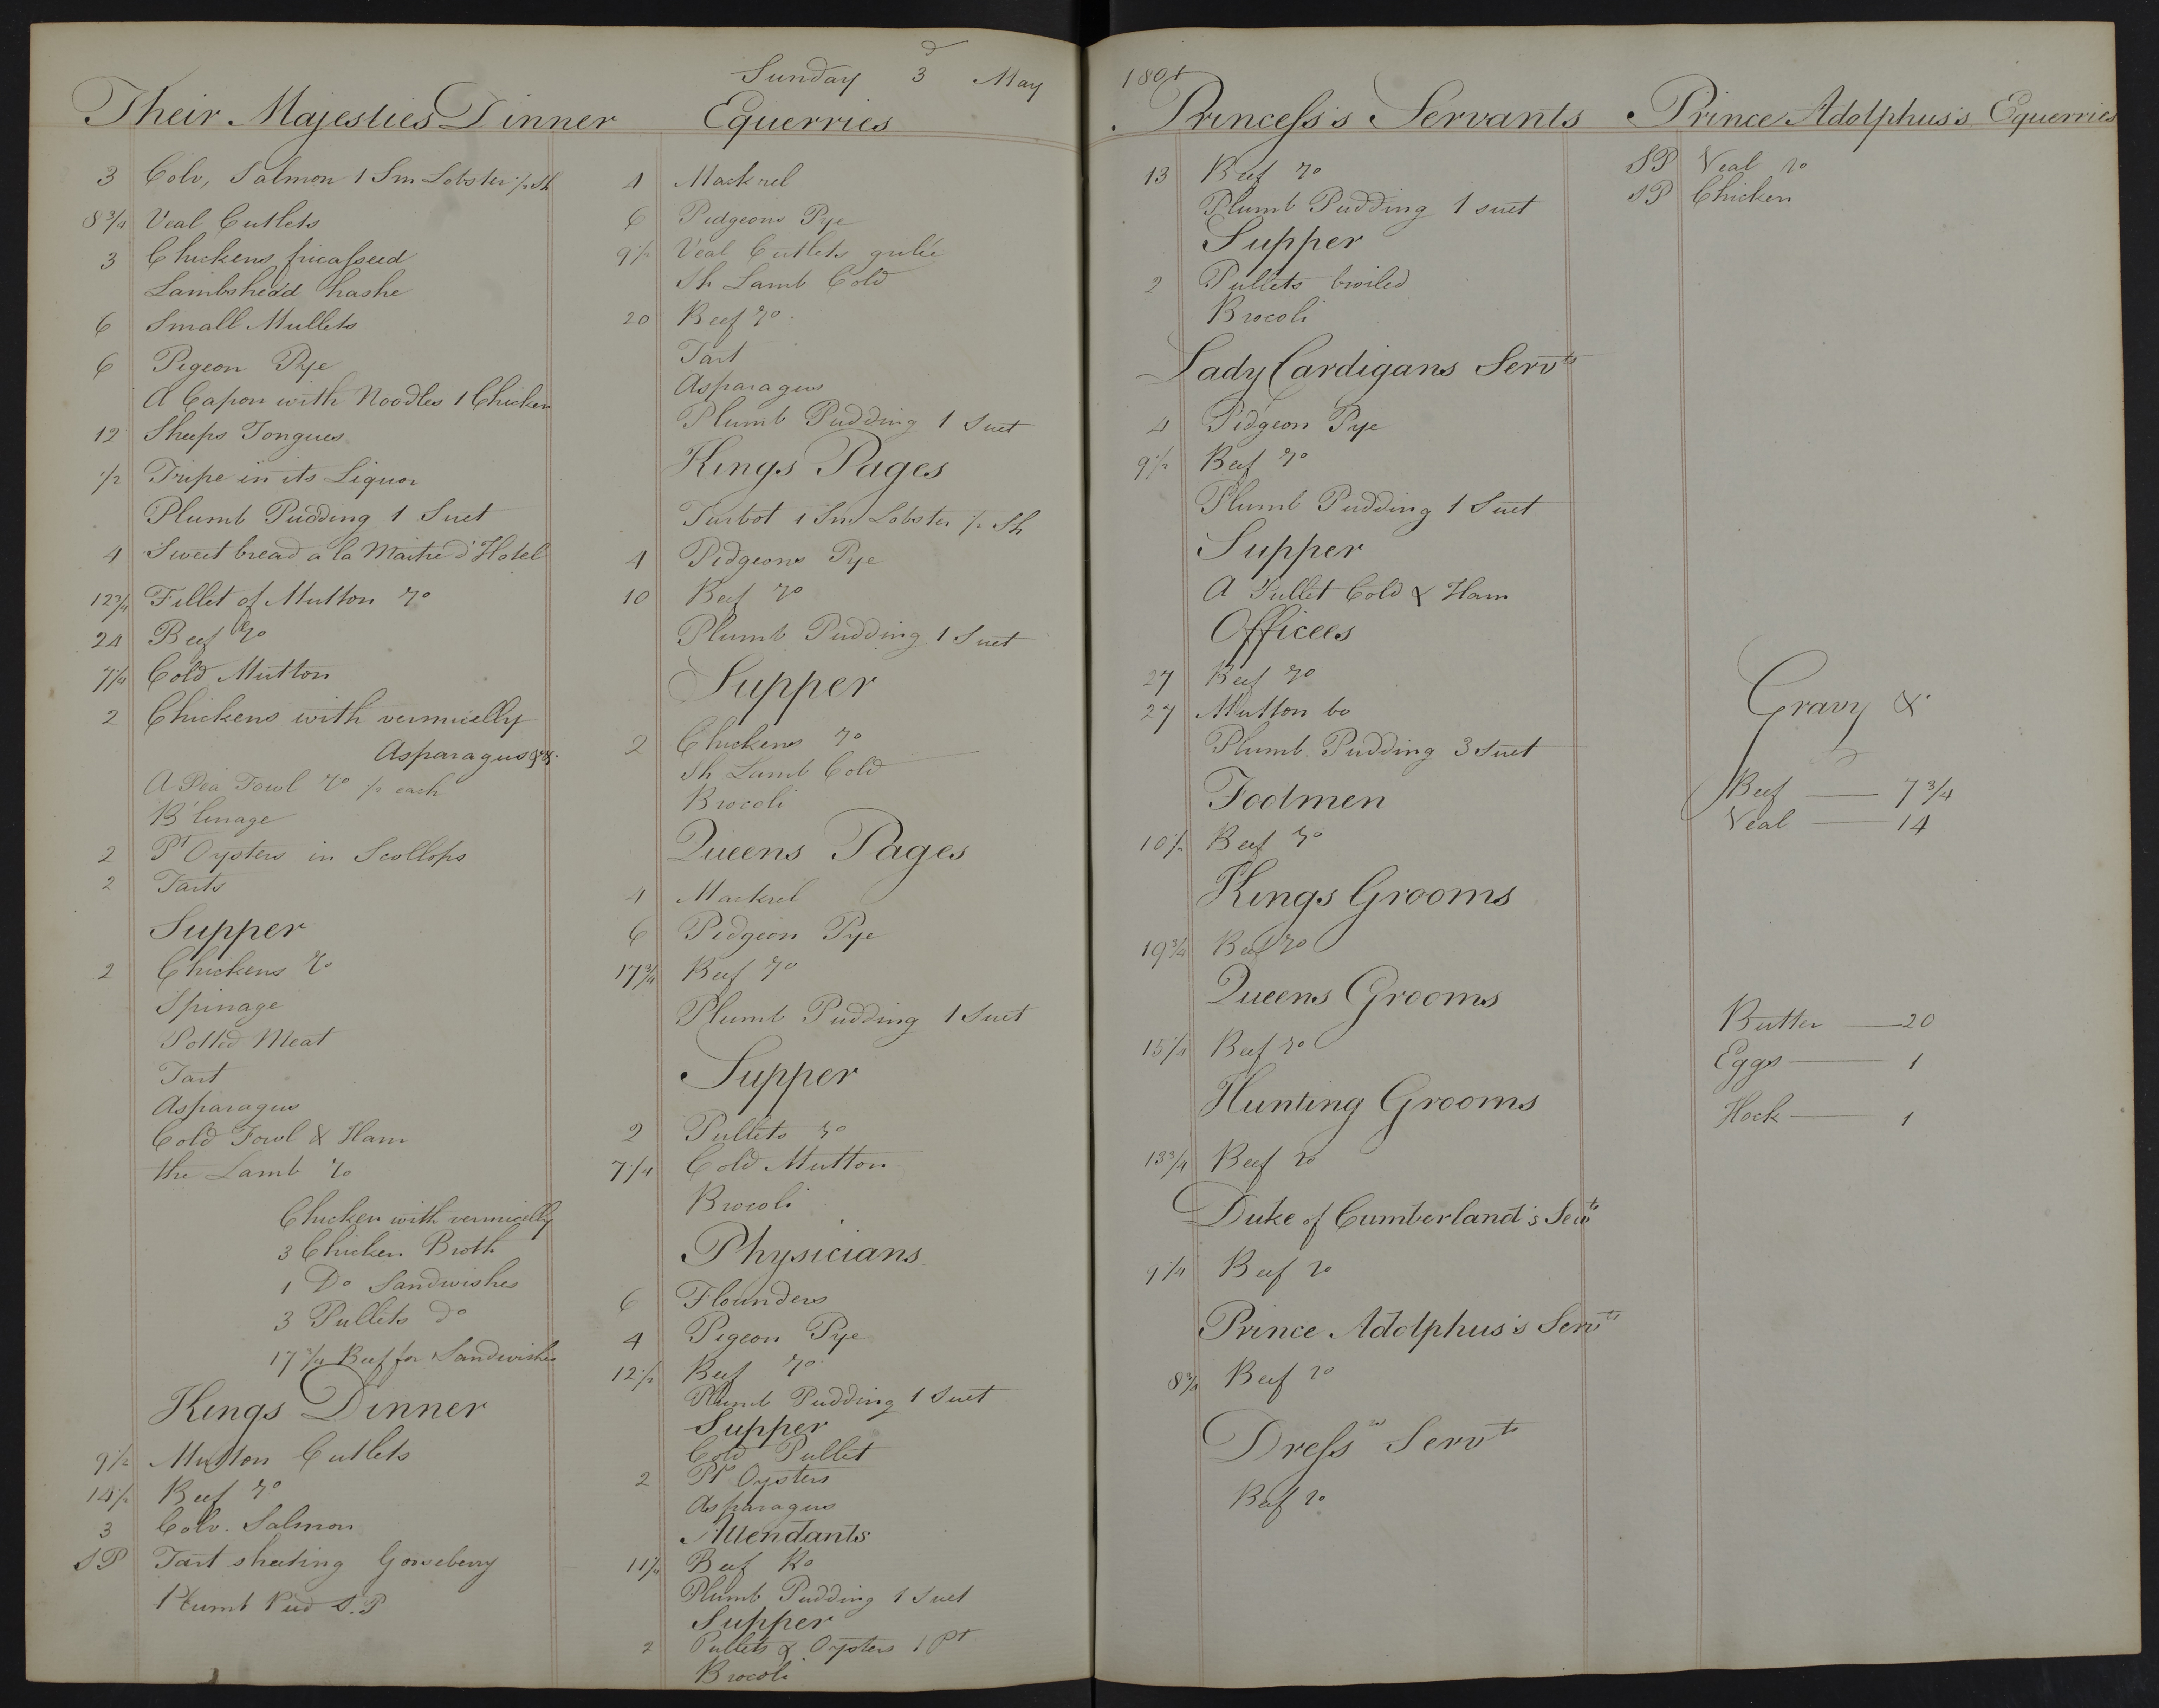 Sunday 3d May
1801
Their Majesties Dinner
3 Colv, Salmon 1 Sm Lobster ½ Sh
8¾ Veal Cutlets
3 Chickens fricasseed
Lambshead hashe
6 Small Mullets
6 Pigeon Pye
A Capon with Noodles 1 Chicken
12 Sheeps Tongues
½ Tripe in its Liquor
Plumb Pudding 1 Suet
4 Sweet bread a la Maitre d'Hotel
12¾ Fillet of Mutton ro
24 Beef ro
7¼ Cold Mutton
2 Chickens with vermicelly
Asparagus
A Pea Fowl ro ½ each
2 Pt Oysters in Scollops
2 Tarts
Supper
2 Chickens ro
Spinage
Potted Meat
Tart
Asparagus
Cold Fowl & Ham
the Lamb ro
Chicken with vermicelly
3 Chicken Broth
1 Do Sandwishes
3 Pullets do
17¾ Beef for Sandwishes
Kings Dinner
9½ Mutton Cutlets
14½ Beef ro
3 Colv. Salmon
SP Tart sheeting Gooseberry
Plumb Pud S.P
Equerries
4 Mackrel
6 Pidgeons Pye
9½ Veal Cutlets
Sh Lamb Cold
20 Beef ro
Tart
Asparagus
Plumb Pudding 1 Suet
Kings Pages
Turbot 1 Sm Lobster ½ Sh
4 Pidgeons Pye
10 Beef ro
Plumb Pudding 1 Suet
Supper
2 Chickens ro
Sh Lamb Cold
Brocoli
Queens Pages
4 Mackrel
6 Pidgeon Pye
17¾ Beef ro
Plumb Pudding 1 Suet
Supper
2 Pullets ro
7¼ Cold Mutton
Brocoli
Physicians
6 Flounders
4 Pigeon Pye
12½ Beef ro
Plumb Pudding 1 Suet
Supper
Cold Pullet
2 Pts Oysters
Asparagus
Attendants
11¼ Beef Ro
Plumb Pudding 1 Suet
Supper
2 Pullets & Oysters 1 Pt
Brocoli
Princess's Servants
13 Beef ro
Plumb Pudding 1 suet
Supper
2 Pullets broiled
Brocoli
Lady Cardigans Servts
4 Pidgeon Pye
9½ Beef ro
Plumb Pudding 1 Suet
Supper
A Pullet Cold & Ham
Officees
27 Beef ro
27 Mutton bo
Plumb Pudding 3 Suet
Footmen
10½ Beef ro
Kings Grooms
19¾ Beef ro
Queens Grooms
15¼ Beef ro
Hunting Grooms
13¾ Beef ro
Duke of Cumberland's Servts
9¼ Beef ro
Prince Adolphus's Servts
8¾ Beef ro
Dressrs Servts
Beef ro
Prince Adolphus's Equerries
SP Veal ro
SP Chicken
Gravy &c
Beef 7¾
Veal 14
Butter 20
Eggs 1
Hock 1